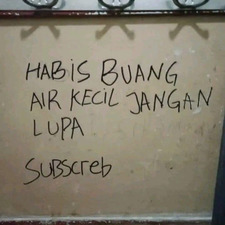 HABIS BUANG
AIR KECIL JANGAN
LUPA
SUBSCreb